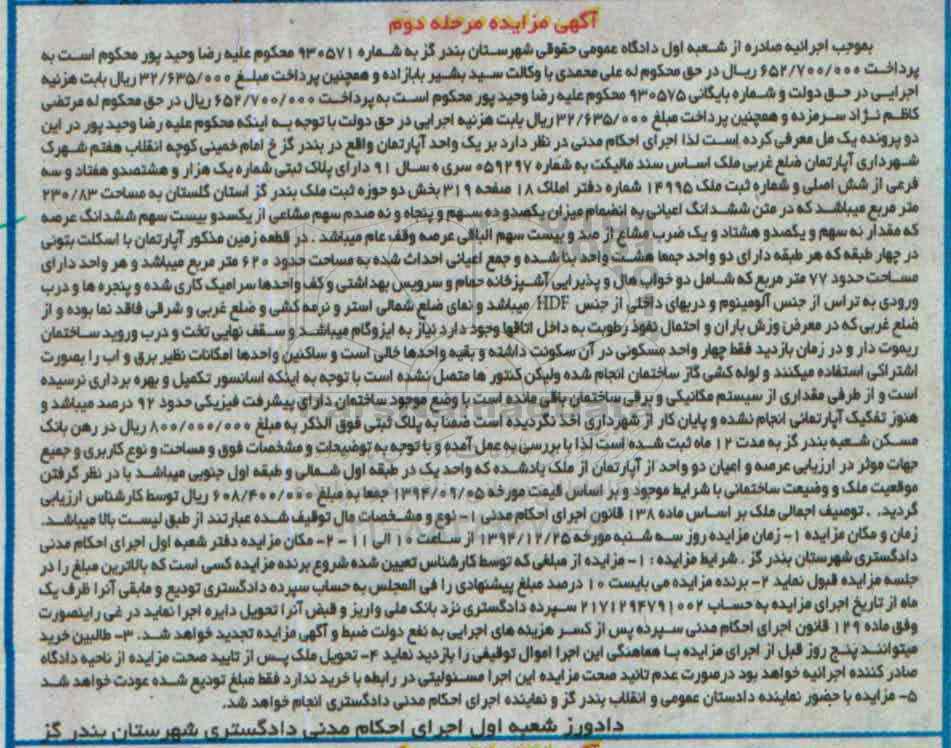 آگهی مزایده مرحله دوم
بموجب اجرائیه صادره از شعبه اول دادگاه عمومی حقوقی شهرستان بندر گز به شماره ۹۳۰۵۷۱ محکوم علیه رضا وحید پور محکوم است به
پرداخت ۶۵۲/۷۰۰/۰۰۰ ریال در حق محکوم له علی محمدی با وکالت سید بشیر بابازاده و همچنین پرداخت مبلغ ۳۲/۶۳۵/۰۰۰ ریال بابت هزینه
اجرایی در حق دولت و شماره بایگانی ۹۳۰۵۷۵ محکوم علیه رضا وحید پور محکوم است به پرداخت ۶۵۲/۷۰۰/۰۰۰ ریال در حق محکوم له مرتضی
کاظم نژاد سرمزده و همچنین پرداخت مبلغ ۳۲/۶۳۵/۰۰۰ ریال بابت هزینه اجرایی در حق دولت با توجه به اینکه محکوم علیه رضا وحید پور در این
دو پرونده یک مل معرفی کرده است لذا اجرای احکام مدنی در نظر دارد بر یک واحد آپارتمان واقع در بندر گز خ امام خمینی کوچه انقلاب هفتم شهرک
شهرداری آپارتمان ضلع غربی ملک اساس سند مالیکت به شماره ۰۵۹۲۹۷ سری ه سال ۹۱ دارای پلاک ثبتی شماره یک هزار و هشتصدو هفتاد و سه
فرعی از شش اصلی و شماره ثبت ملک ۱۴۹۹۵ شماره دفتر املاک ۱۸ صفحه ۳۱۹ بخش دو حوزه ثبت ملک بندر گز استان گلستان به مساحت ۲۳۰/۸۳
متر مربع میباشد که در متن ششدانگ اعیانی به انضمام میزان یکصدو ده سهم و پنجاه و نه صدم سهم مشاعی از یکصدو بیست سهم ششدانگ عرصه
که مقدار نه سهم و یکصدو هشتاد و یک ضرب مشاع از صد و بیست سهم الباقی عرصه وقف عام میباشد . در قطعه زمین مذکور آپارتمان با اسکلت بتونی
در چهار طبقه که هر طبقه دارای دو واحد جمعا هشت واحد بنا شده و جمع اعیانی احداث شده به مساحت حدود ۶۲۰ متر مربع میباشد و هر واحد دارای
مساحت حدود ۷۷ متر مربع که شامل دو خواب هال و پذیرایی آشپزخانه حمام و سرویس بهداشتی و کف واحدها سرامیک کاری شده و پنجره ها و درب
ورودی به تراس از جنس آلومینیوم و دربهای داخلی از جنس HDF میباشد و نمای ضلع شمالی آستر و نرمه کشی و ضلع غربی و شرقی فاقد نما بوده و از
ضلع غربی که در معرض وزش باران و احتمال نفوذ رطوبت به داخل اتاقها وجود دارد نیاز به ایزوگام میباشد و سقف نهایی تخت و درب وروید ساختمان
ریموت دار و در زمان بازدید فقط چهار واحد مسکونی در آن سکونت داشته و بقیه واحدها خالی است و ساکنین واحدها امکانات نظیر برق و اب را بصورت
اشتراکی استفاده میکنند و لوله کشی گاز ساختمان انجام شده ولیکن کنتور ها متصل نشده است با توجه به اینکه اسانسور تکمیل و بهره برداری نرسیده
است و از طرفی مقداری از سیستم مکانیکی و برقی ساختمان باقی مانده است با وضع موجود ساختمان دارای پیشرفت فیزیکی حدود ۹۲ درصد میباشد و
هنوز تفکیک آپارتمانی انجام نشده و پایان کار از شهرداری اخذ نگردیده است ضمنا به پلاک ثبتی فوق الذکر به مبلغ ۸۰۰/۰۰۰/۰۰۰ ریال در رهن بانک
مسکن شعبه بندر گز به مدت ۱۲ ماه ثبت شده است لذا با بررسی به عمل آمده و با توجه به توضیحات و مشخصات فوق و مساحت و نوع کاربری و جمیع
جهات موثر در ارزیابی عرصه و اعیان دو واحد از آپارتمان از ملک یادشده که واحد یک در طبقه اول شمالی و طبقه اول جنوبی میباشد با در نظر گرفتن
موقعیت ملک و وضیعت ساختمانی با شرایط موجود و بر اساس قیمت مورخه ۱۳۹۴/۰۹/۰۵ جمعا به مبلغ ۶۰۸/۴۰۰/۰۰۰ ریال توسط کارشناس ارزیابی
گردید. . توصیف اجمالی ملک بر اساس ماده ۱۳۸ قانون اجرای احکام مدنی ۱- نوع و مشخصات مال توقیف شده عبارتند از طبق لیست بالا میباشد.
زمان و مکان مزایده ۱- زمان مزایده روز سه شنبه مورخه ۱۳۹۴/۱۲/۲۵ از ساعت ۱۰ الی ۱۱ - ۲- مکان مزایده دفتر شعبه اول اجرای احکام مدنی
دادگستری شهرستان بندر گز . شرایط مزایده : ۱- مزایده از مبلغی که توسط کارشناس تعیین شده شروع برنده مزایده کسی است که بالاترین مبلغ را در
جلسه مزایده قبول نماید ۲- برنده مزایده می بایست ۱۰ درصد مبلغ پیشنهادی را فی المجلس به حساب سپرده دادگستری تودیع و مابقی آنرا ظرف یک
ماه از تاریخ اجرای مزایده به حساب ۲۱۷۱۲۹۴۷۹۱۰۰۲ سپرده دادگستری نزد بانک ملی واریز و قبض آنرا تحویل دایره اجرا نماید در غی راینصورت
وفق ماده ۱۲۹ قانون اجرای احکام مدنی سپرده پس از کسر هزینه های اجرایی به نفع دولت ضبط و آگهی مزایده تجدید خواهد شد. ۳- طالبین خرید
میتوانند پنج روز قبل از اجرای مزایده با هماهنگی این اجرا اموال توقیفی را بازدید نماید ۴- تحویل ملک پس از تایید صحت مزایده از ناحیه دادگاه
صادر کننده اجرائیه خواهد بود در صورت عدم تائید صحت مزایده این اجرا مسئولیتی در رابطه با خرید ندارد فقط مبلغ تودیع شده عودت خواهد شد
۵- مزایده با حضور نماینده دادستان عمومی و انقلاب بندر گز و نماینده اجرای احکام مدنی دادگستری انجام خواهد شد.
دادورز شعبه اول اجرای احکام مدنی دادگستری شهرستان بندر گز